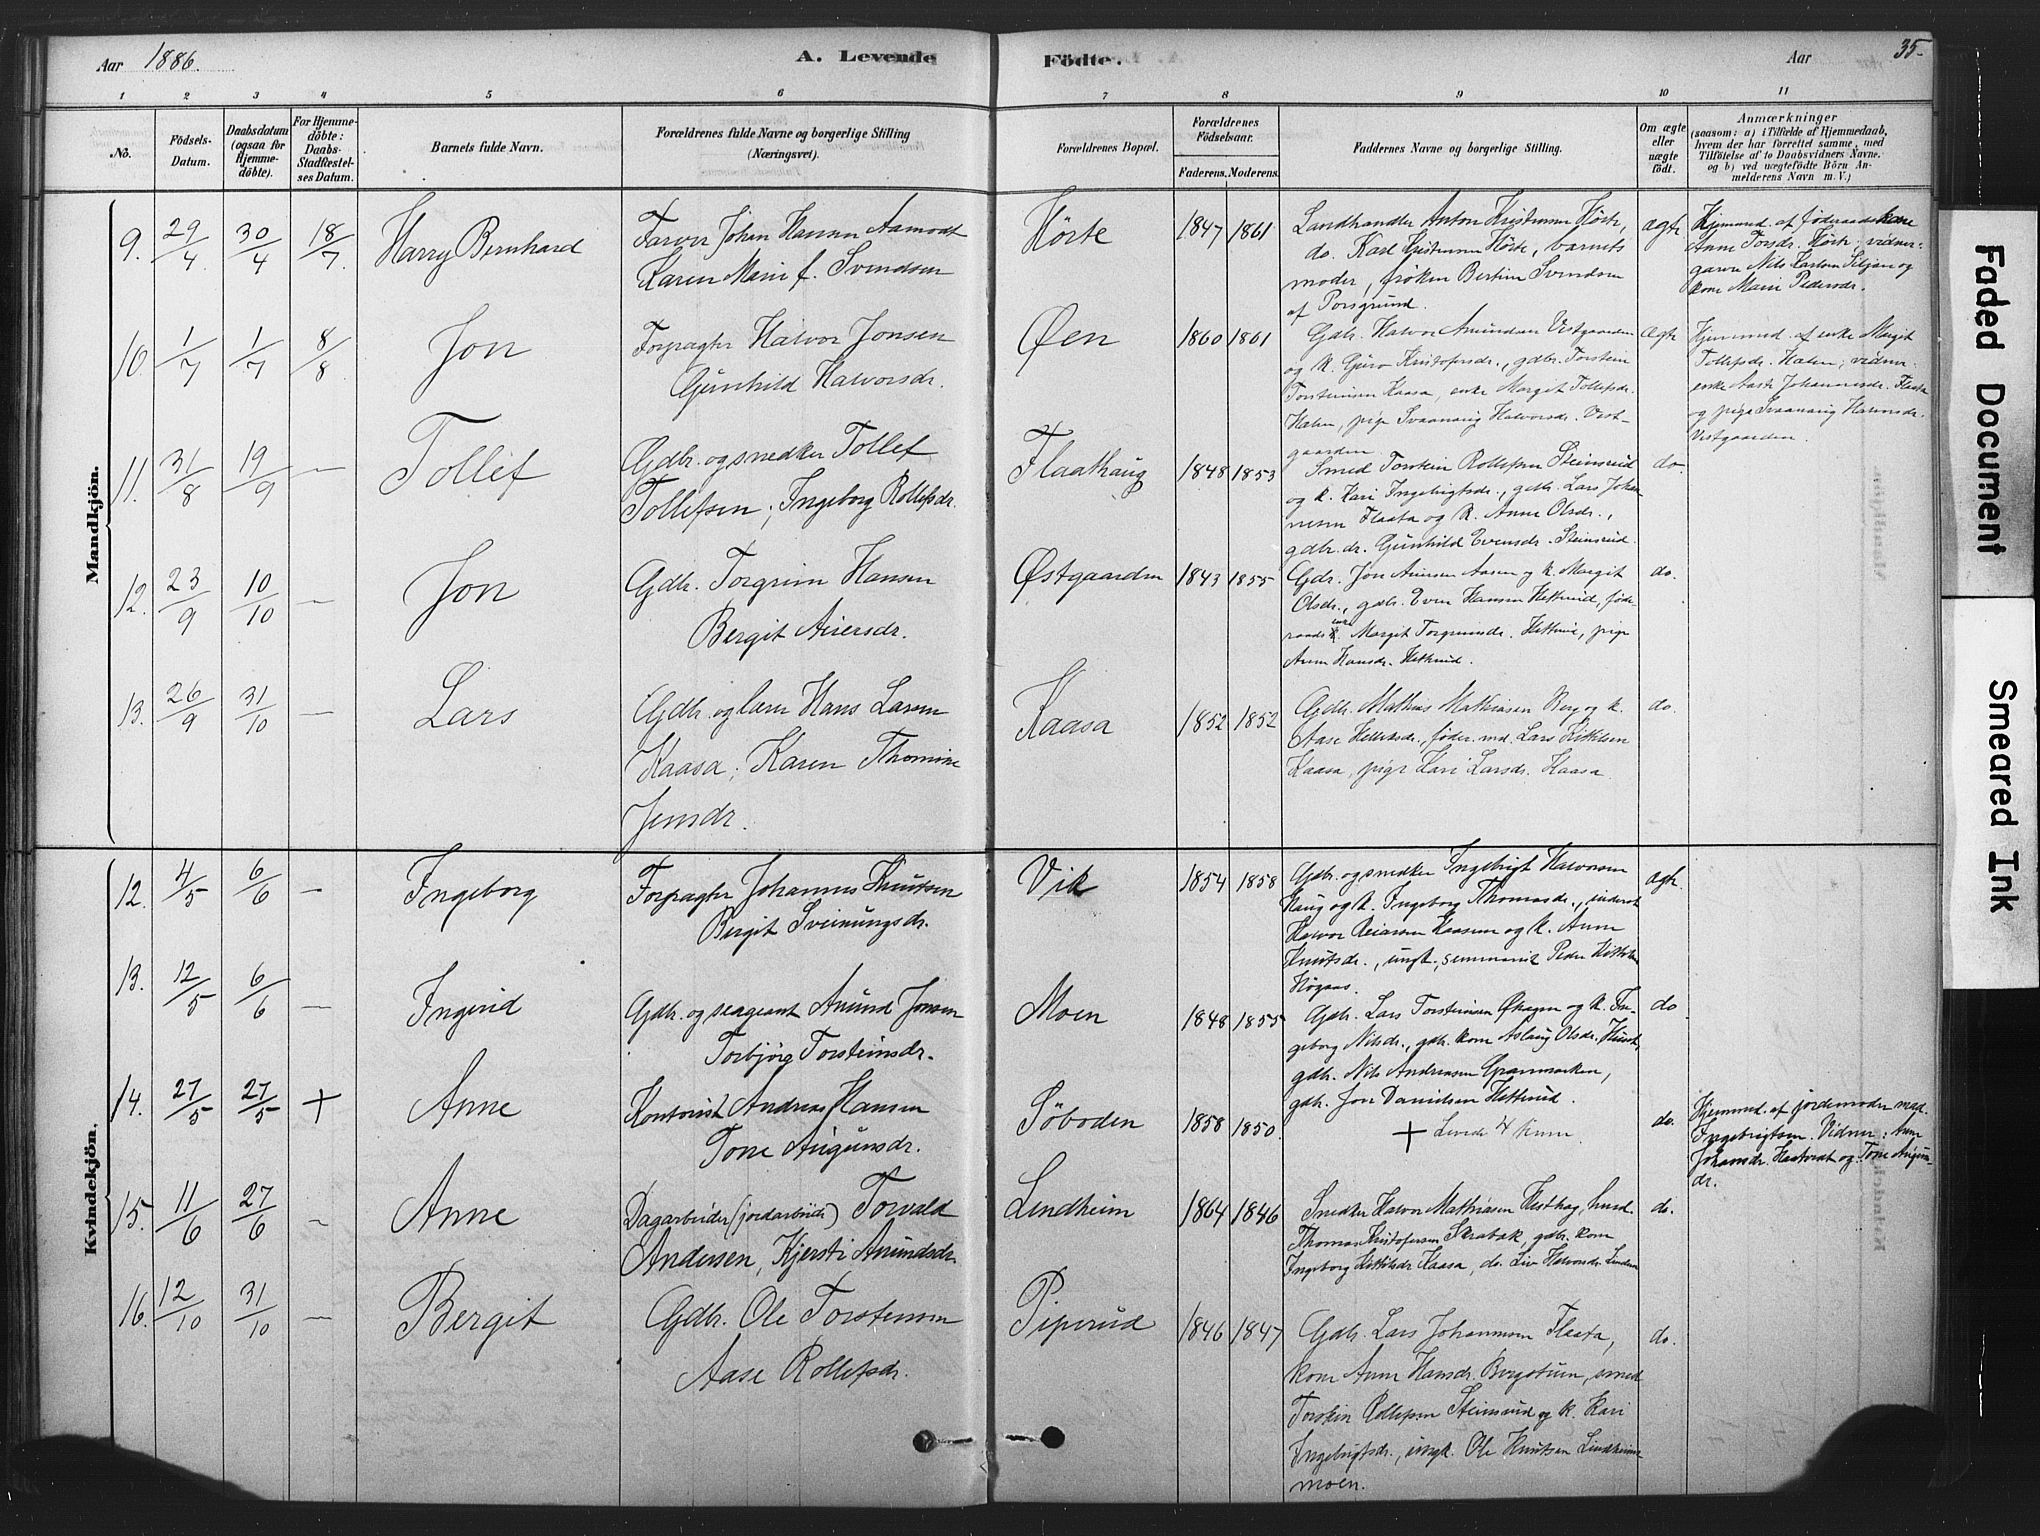 Aar 1886.
A. Levende Födte.
Aar
35.
1 2 3 4 5 6 7 8 9 10 11
No.
Födsels-
Datum.
Daabsdatum
(ogsaa for
Hjemme-
döbte).
For Hjemme-
döbte:
Daabs-
Stadfæstel-
ses Datum.
Barnets fulde Navn.
Forældrenes fulde Navne og borgerlige Stilling
(Næringsvei).
Forældrenes Bopæl.
Forældrenes
Födselsaar.
Faderens. Moderens.
Faddernes Navne og borgerlige Stilling.
Om ægte
eller
uægte
født.
Anmærkninger
(saasom: a) i Tilfælde af Hjemmedaab,
hvem der har forrettet samme, med
Tilföielse af to Daabsvidners Navne.
og b) ved uægtefödte Börn An-
melderens Navn m. V.)
Mandkjön.
9. 29/4 30/4 18/7. Harry Bernhard
Farver Johan Hansen Aamodt
Karen Marie f. Svendsen
Hörte 1847 1861
Landhandler Anton Kristensen Hörte,
do. Karl Kristensen Hörte, barnets
moder, frøken Bertine Svendsen
af Porsgrund.
ægte
Hjemmed. af föderaadskone
Anne Torsdr. Hörte; vidner:
garver Nils Karlsen Siljan og
kone Marie Pedersdr.
10. 1/7 1/7 8/8 Jon
Forpagter Halvor Jonsen
Gunhild Halvorsdr.
Øen 1860 1861
Gdbr. Halvor Amundsen Vestgaarden
og k. Guro Kristofersdr., gdbr. Torstein
Torsteinsen Kaasa, enke Margit Tollefsdr.
Halen, pige Svaanaug Halvorsdr. Vest-
gaarden
ægte
Hjemmed. af enke Margit
Tollefsdr. Halen; vidner:
enke Aaste Johannesdr. Flaata
og pige Svaanaug Halvorsdr.
Vestgaarden.
11. 31/8 19/9 — Tollef
Gdbr. og snedker Tollef
Tollefsen; Ingeborg Rollefsdr.
Flaathaug 1848 1853
Smed Torstein Rollefsen Steinsrud
og k. Kari Ingebrigtsdr., gdbr. Lars Johan-
nesen Flaata og k. Anne Olsdr.,
gdbr. dr. Gunhild Evensdr. Steinsrud.
do.
12. 23/9 10/10 — Jon
Gdbr. Torgrim Hansen
Bergit Aiversdr.
Østgaarden 1843 1855
Gdbr. Jon Aiversen Aasen og k. Margit
Olsdr., gdbr. Even Hansen Hetterud, føde-
raadsenke Margit Torgrimsdr. Hetterud, pige
Anne Hansdr. Hetterud.
do.
13. 26/9 31/10 — Lars
Gdbr. og lærer Hans Larsen
Kaasa; Karen Thomine
Jensdr.
Kaasa 1852 1852
Gdbr. Mathias Mathiasen Berg og k.
Aase Helleksdr., føder. md. Lars Kittilsen
Kaasa, pige Kari Larsdr. Kaasa.
do.
Kvindekjön.
12. 4/5 6/6 — Ingeborg
Forpagter Johannes Knutsen
Bergit Sveinungsdr.
Vik 1854 1858
Gdbr. og snedker Ingebrigt Halvorsen
Haug og k. Ingeborg Thomasdr., inderst
Halvor Reiarsen Kaasene og k. Anne
Knutsdr., ungk., seminarist Peder Kittilsen
Högaas.
ægte.
13. 12/5 6/6 — Ingerid
Gdbr. og seageant Amund Jonsen
Torbjörg Torsteinsdr.
Moen 1848 1855
Gdbr. Lars Torsteinsen Økagen og k. In-
geborg Nilsdr., gdbr. kone Aslaug Olsdr.
gdbr. Nils Andreassen Granmarken,
gdbr. Jon Danielsen Hetterud.
do
14. 27/5 27/5 + Anne
Kontorist Andreas Hansen
Tone Augunsdr.
Söboden 1858 1850.
+ Levede 1/4 time.
do.
Hjemmed. af jordemoder mad.
Ingebrigtsen. Vidner: Anne
Johansdr. Haatveit og Tone Augun-
dr.
15. 11/6 27/6 — Anne
Dagarbeider (jordarbeider) Torvald
Andersen, Kjersti Amundsdr.
Lindheim 1864 1846
Snedker Halvor Mathiasen Hesthag, husmd.
Thomas Kristofersen Skrabak, gdbr. kone
Ingeborg Kittilsdr. Kaasa, do. Liv Halvorsdr. Lindem
do.
16. 12/10 31/10 — Bergit
Gdbr. Ole Torstensen
Aase Rollefsdr.
Piperud 1846 1847
Gdbr. Lars Johannesen Flaata,
kone Anne Hansdr. Bergstuen, smed
Torstein Rollefsen Steinsrud og k. Kari
Ingebrigtsdr., ungk. Ole Knutsen Lindheims-
moen.
do.
Faded Document
Smeared Ink